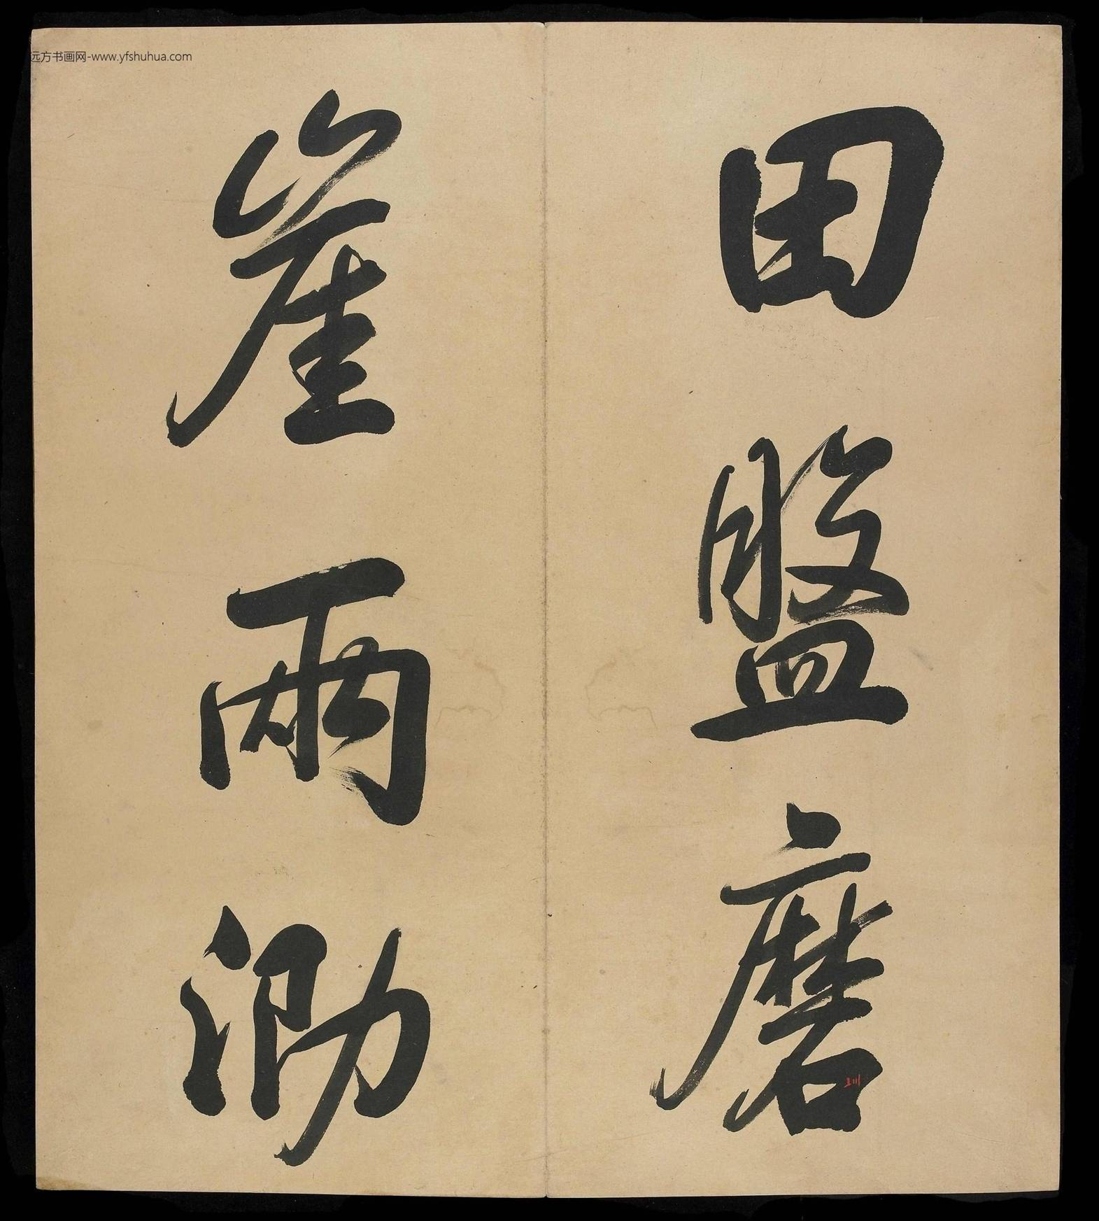 远方书画网-www.yfshuhua.com
田盤磨
崖兩泐